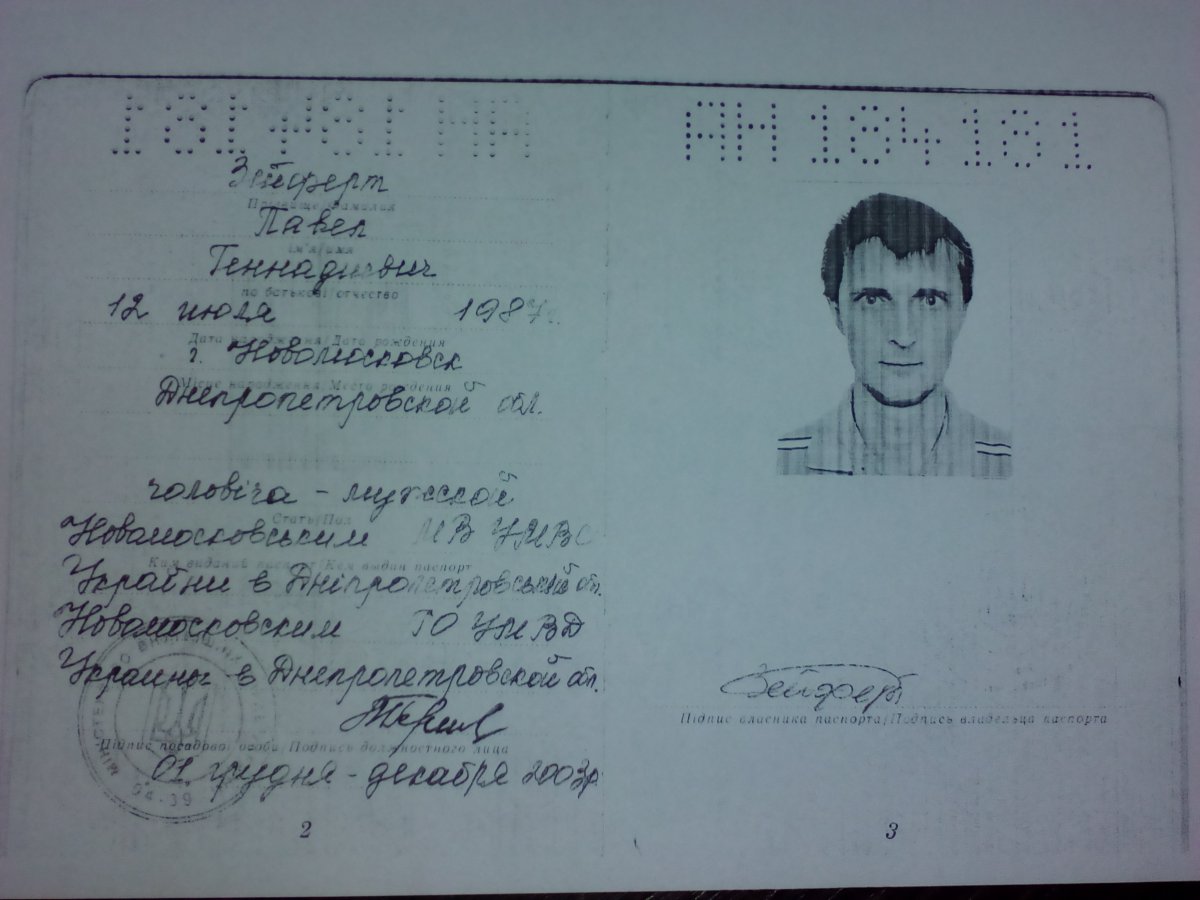 Зейферт
Прізвище/Фамилия
Павел
ім'я/имя
Геннадиевич
по батькові/отчество
12 июля 1987г.
Дата народження/Дата рождения
г. Новомосковск
Місце народження/Место рождения
Днепропетровской обл.
чоловіча - мужской
Стать/Пол
Новомосковським МВ УМВС
Ким виданий паспорт/Кем выдан паспорт
України в Дніпропетровський обл.
Новомосковским ГО УМВД
Украины в Днепропетровской обл.
Підпис посадової особи/Подпись должностного лица
01 грудня - декабря 2003р
04-39
2
АН 184181
Зейферт
Підпис власника паспорта/Подпись владельца паспорта
3